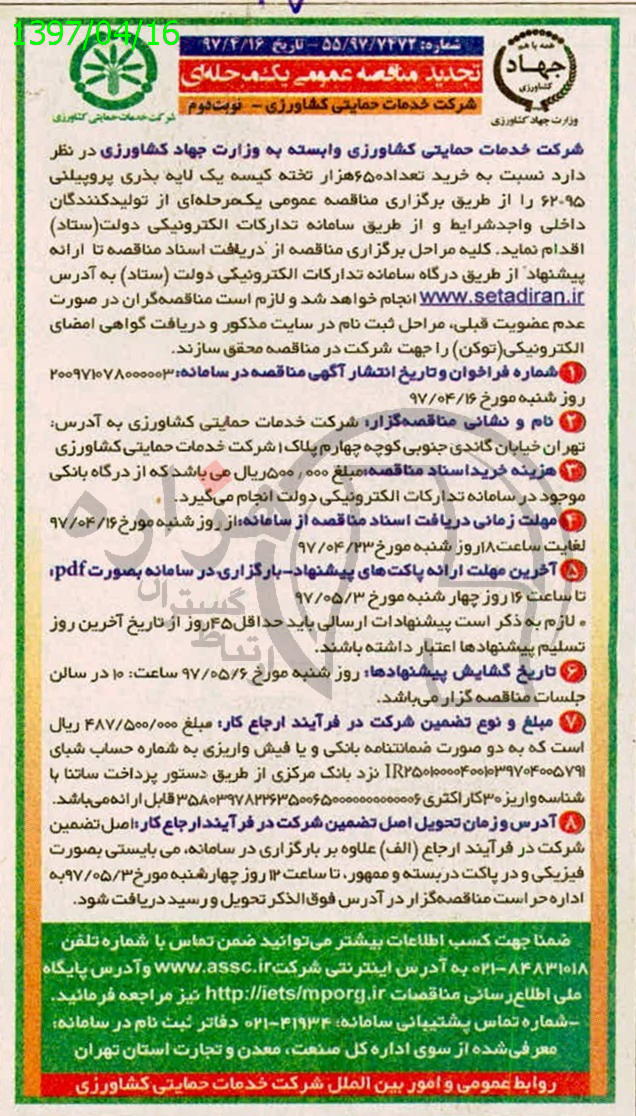 1397/04/16
شماره: ۵۵/۹۷/۷۴۷۲ - تاریخ ۹۷/۴/۱۶
تجدید مناقصه عمومی یک‌مرحله‌ای
شرکت خدمات حمایتی کشاورزی - نوبت دوم
همه با هم
جهاد
کشاورزی
وزارت جهاد کشاورزی
شرکت خدمات حمایتی کشاورزی
شرکت خدمات حمایتی کشاورزی وابسته به وزارت جهاد کشاورزی در نظر
دارد نسبت به خرید تعداد ۶۵۰ هزار تخته کیسه یک لایه بذری پروپیلنی
۶۲*۹۵ را از طریق برگزاری مناقصه عمومی یک‌مرحله‌ای از تولیدکنندگان
داخلی واجدشرایط و از طریق سامانه تدارکات الکترونیکی دولت(ستاد)
اقدام نماید. کلیه مراحل برگزاری مناقصه از "دریافت اسناد مناقصه تا ارائه
پیشنهاد" از طریق درگاه سامانه تدارکات الکترونیکی دولت (ستاد) به آدرس
www.setadiran.ir انجام خواهد شد و لازم است مناقصه‌گران در صورت
عدم عضویت قبلی، مراحل ثبت نام در سایت مذکور و دریافت گواهی امضای
الکترونیکی(توکن) را جهت شرکت در مناقصه محقق سازند.
۱ شماره فراخوان و تاریخ انتشار آگهی مناقصه در سامانه: ۲۰۰۹۷۱۰۷۸۰۰۰۰۰۳
روز شنبه مورخ ۹۷/۰۴/۱۶
۲ نام و نشانی مناقصه‌گزار: شرکت خدمات حمایتی کشاورزی به آدرس:
تهران خیابان گاندی جنوبی کوچه چهارم پلاک ۱ شرکت خدمات حمایتی کشاورزی
۳ هزینه خرید اسناد مناقصه: مبلغ ۵۰۰/۰۰۰ ریال می باشد که از درگاه بانکی
موجود در سامانه تدارکات الکترونیکی دولت انجام می‌گیرد.
۴ مهلت زمانی دریافت اسناد مناقصه از سامانه: از روز شنبه مورخ ۹۷/۰۴/۱۶
لغایت ساعت ۱۸ روز شنبه مورخ ۹۷/۰۴/۲۳
۵ آخرین مهلت ارائه پاکت های پیشنهاد-بارگزاری در سامانه بصورت pdf:
تا ساعت ۱۶ روز چهار شنبه مورخ ۹۷/۰۵/۳
* لازم به ذکر است پیشنهادات ارسالی باید حداقل ۴۵ روز از تاریخ آخرین روز
تسلیم پیشنهادها اعتبار داشته باشند.
۶ تاریخ گشایش پیشنهادها: روز شنبه مورخ ۹۷/۰۵/۶ ساعت: ۱۰ در سالن
جلسات مناقصه گزار می‌باشد.
۷ مبلغ و نوع تضمین شرکت در فرآیند ارجاع کار: مبلغ ۴۸۷/۵۰۰/۰۰۰ ریال
است که به دو صورت ضمانتنامه بانکی و یا فیش واریزی به شماره حساب شبای
نزد بانک مرکزی از طریق دستور پرداخت ساتنا با
شناسه واریز ۳۰ کاراکتری قابل ارائه می‌باشد.
۸ آدرس و زمان تحویل اصل تضمین شرکت در فرآیند ارجاع کار: اصل تضمین
شرکت در فرآیند ارجاع (الف) علاوه بر بارگزاری در سامانه، می بایستی بصورت
فیزیکی و در پاکت دربسته و ممهور، تا ساعت ۱۲ روز چهارشنبه مورخ ۹۷/۰۵/۳ به
اداره حراست مناقصه‌گزار در آدرس فوق‌الذکر تحویل و رسید دریافت شود.
ضمنا جهت کسب اطلاعات بیشتر می‌توانید ضمن تماس با شماره تلفن
۰۲۱-۸۴۸۳۱۰۱۸ به آدرس اینترنتی شرکت www.assc.ir و آدرس پایگاه
ملی اطلاع‌رسانی مناقصات http://iets/mporg.ir نیز مراجعه فرمائید.
-شماره تماس پشتیبانی سامانه: ۰۲۱-۴۱۹۳۴ دفاتر ثبت نام در سامانه:
معرفی‌شده از سوی اداره کل صنعت، معدن و تجارت استان تهران
روابط عمومی و امور بین الملل شرکت خدمات حمایتی کشاورزی
هزاره
گستران
ارتباط